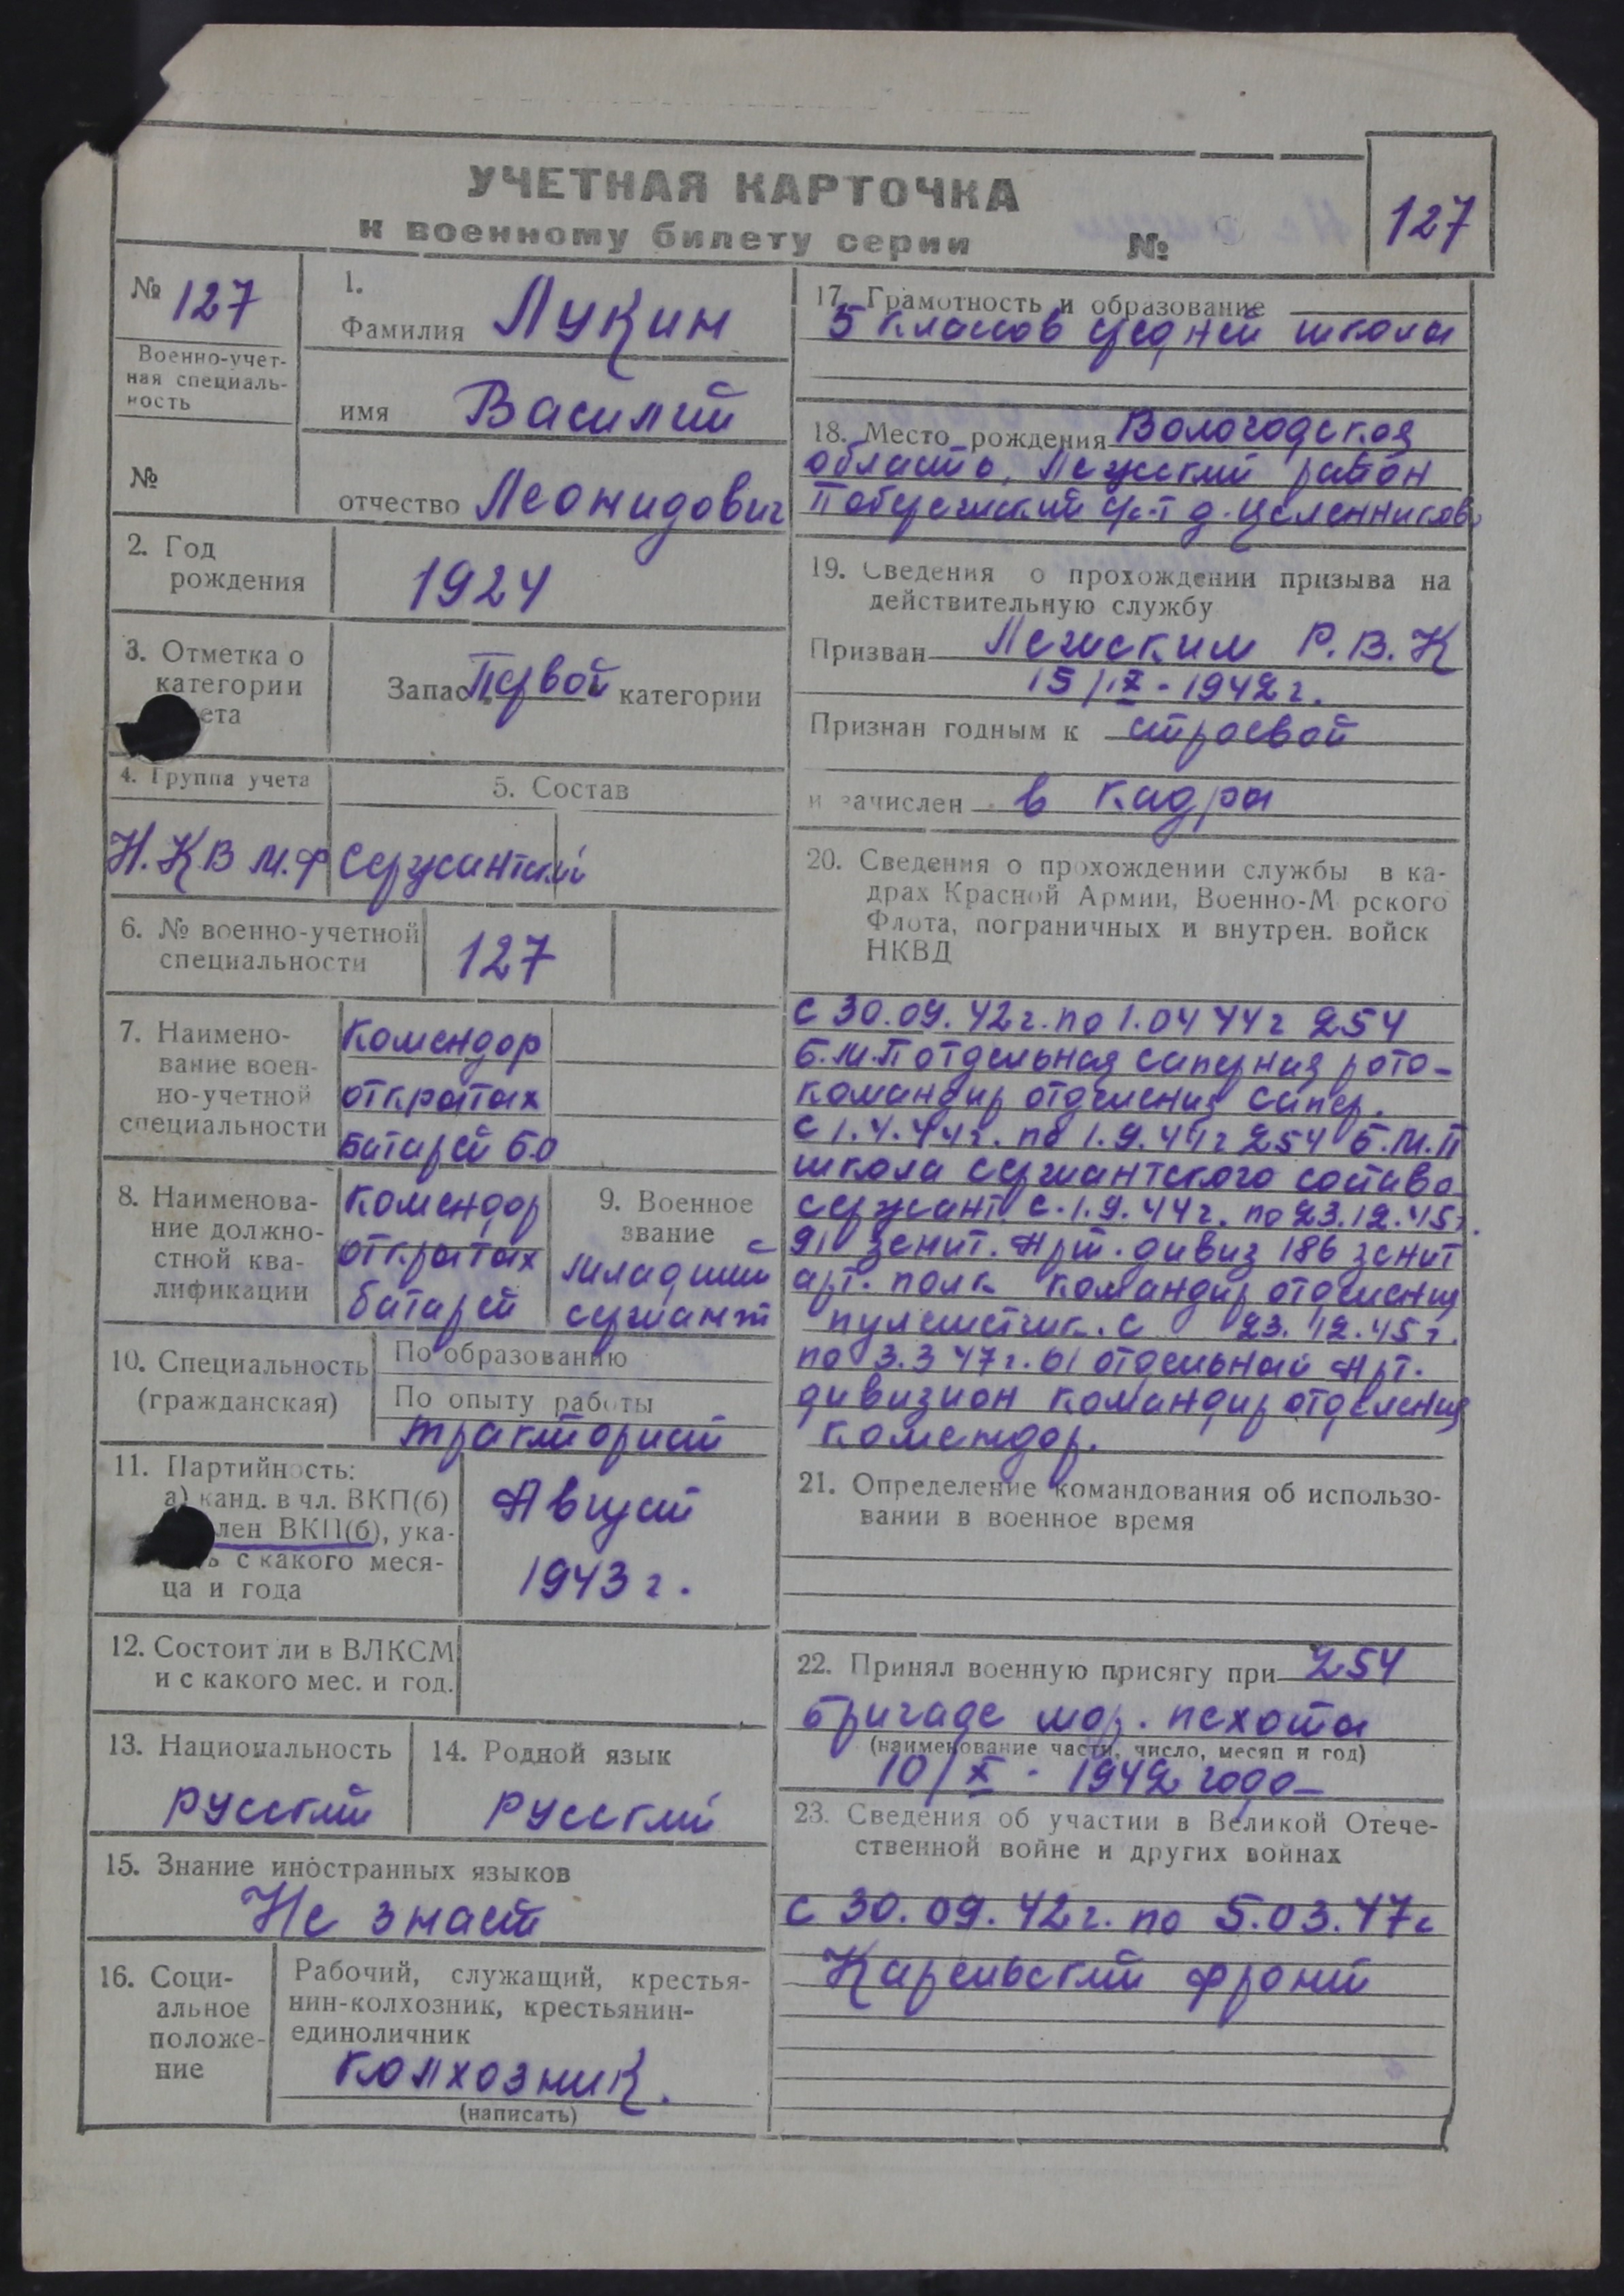 УЧЕТНАЯ КАРТОЧКА
к военному билету серии №
127
№ 127
Военно-учет-
ная специаль-
ность
№
1.
Фамилия Лукин
имя Василий
отчество Леонидович
2. Год
рождения
1924
3. Отметка о
категории
ета
Запас Первой категории
4. Группа учета
Н.К В М.Ф
5. Состав
Сержантский
6. № военно-учетной
специальности
127
7. Наимено-
вание воен-
но-учетной
специальности
Комендор
открытых
батарей БО
8. Наименова-
ние должно-
стной ква-
лификации
Комендор
открытых
батарей
9. Военное
звание
Младший
сержант
10. Специальность
(гражданская)
По образованию
По опыту работы
тракторист
11. Партийность:
а) канд. в чл. ВКП(б)
лен ВКП(б), ука-
ь с какого меся-
ца и года
Август
1943 г.
12. Состоит ли в ВЛКСМ
и с какого мес. и год.
13. Национальность
русский
14. Родной язык
русский
15. Знание иностранных языков
Не знает
16. Соци-
альное
положе-
ние
Рабочий, служащий, крестья-
нин-колхозник, крестьянин-
единоличник
колхозник.
(написать)
17. Грамотность и образование
5 классов средней школы
18. Место рождения Вологодская
область, Лежский район
с/с-т д.
19. Сведения о прохождении призыва на
действительную службу
Призван Лежским Р.В.К
15/IX-1942 г.
Признан годным к строевой
и зачислен в кадры
20. Сведения о прохождении службы в ка-
драх Красной Армии, Военно-М рского
Флота, пограничных и внутрен. войск
НКВД
с 30.09.42 г. по 1.04 44 г 254
Б.М.П отдельная саперная рота-
командир отделения сапер.
с 1.4.44 г. по 1.9.44 г 254 Б.М.П
школа сержантского состава
сержант. с. 1.9.44 г. по 23.12.45 г.
91 зенит. Арт. дивиз 186 зенит
арт. полк командир отделения
пулеметчик. с 23.12.45 г.
по 3.3 47 г. 61 отдельный Арт.
дивизион командир отделения
комендор.
21. Определение командования об использо-
вании в военное время
22. Принял военную присягу при 254
бригаде мор. пехоты
(наименование части, число, месяц и год)
10/X-1942 года
23. Сведения об участии в Великой Отече-
ственной войне и других войнах
с 30.09.42 г. по 5.03.47 г
Карельский фронт